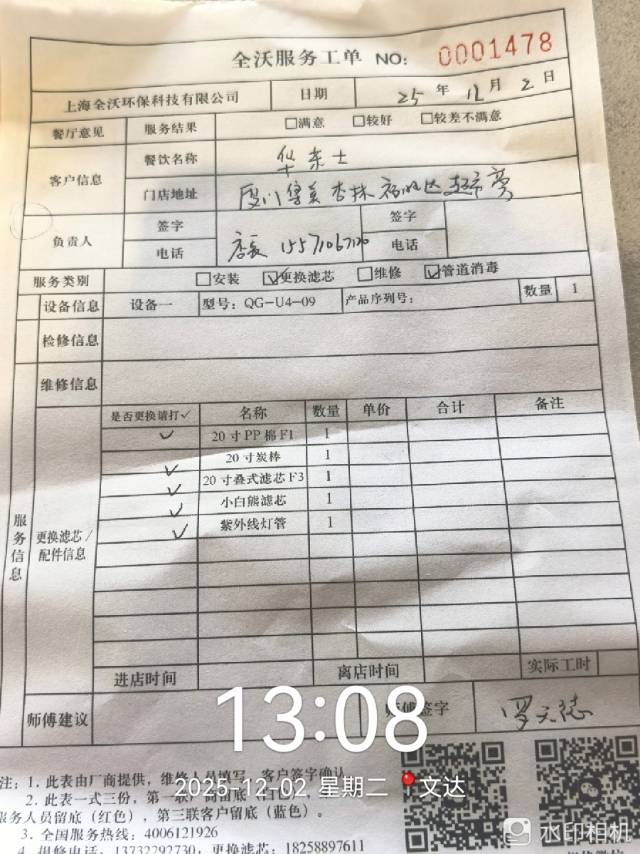 全沃服务工单 NO: 0001478
上海全沃环保科技有限公司 日期 25 年 12 月 2 日
餐厅意见 服务结果 □满意 □较好 □较差不满意
客户信息 餐饮名称 华莱士
门店地址 厦门集美杏林
负责人 签字 签字
电话 店长 电话
服务类别 □安装 ☑更换滤芯 □维修 ☑管道消毒
设备信息 设备一 型号: QG-U4-09 产品序列号: 数量 1
检修信息
维修信息
服务信息
更换滤芯/配件信息
是否更换请打✓ 名称 数量 单价 合计 备注
✓ 20寸PP棉F1 1
✓ 20寸炭棒 1
✓ 20寸叠式滤芯F3 1
✓ 小白熊滤芯 1
✓ 紫外线灯管 1
进店时间 离店时间 实际工时
师傅建议 师傅签字
13:08
2025-12-02 星期二 文达
注: 1. 此表由厂商提供, 维修人员填写, 客户签字确认
2. 此表一式三份, 第一联厂商留底
服务人员留底（红色）, 第三联客户留底（蓝色）。
3. 全国服务热线: 4006121926
4. 报修电话: 13732297730, 更换滤芯: 18258897611
水印相机